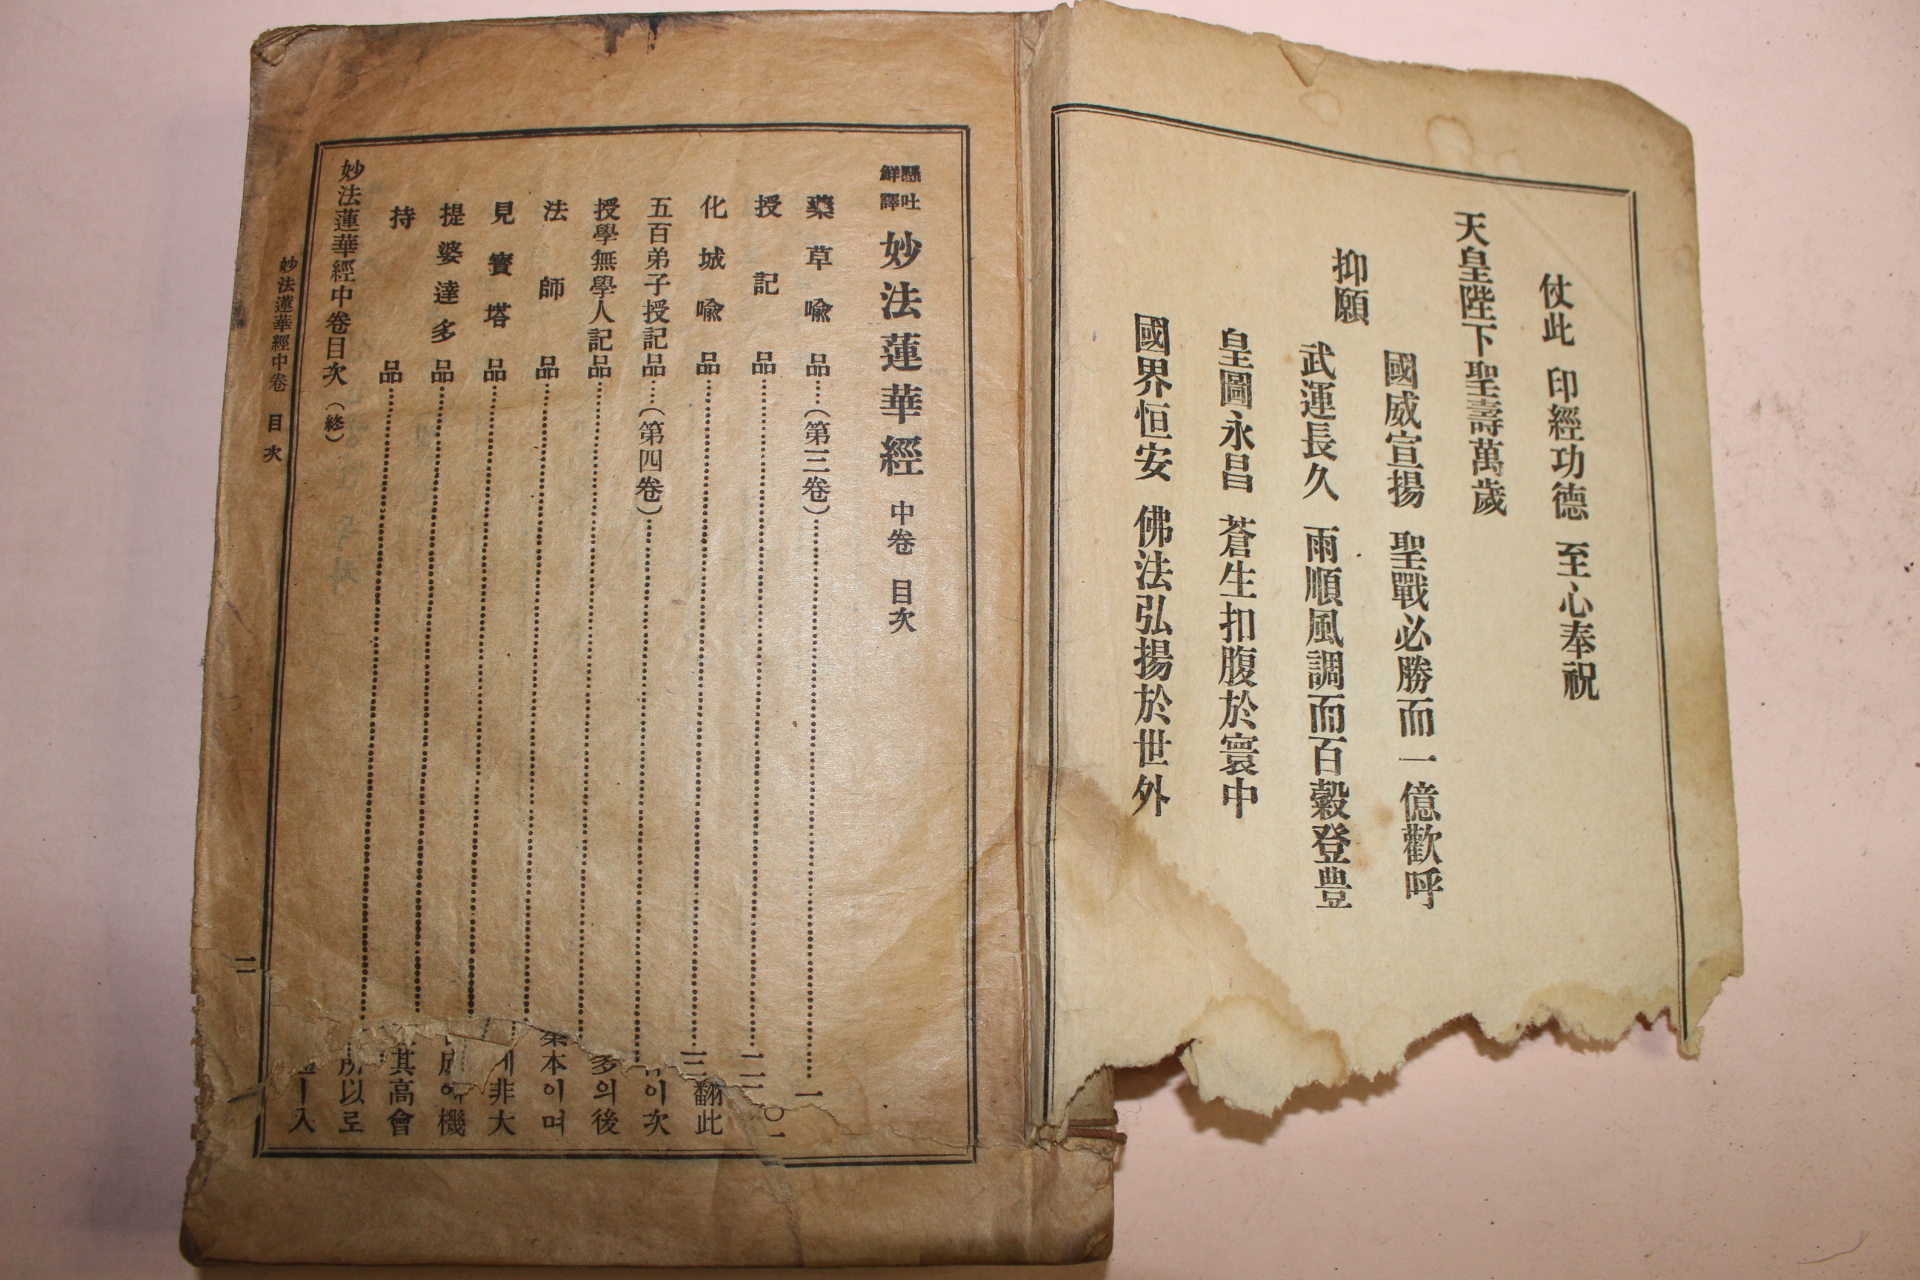 仗此 印經功德 至心奉祝
天皇陛下聖壽萬歲
國威宣揚 聖戰必勝而一億歡呼
抑願
武運長久 雨順風調而百穀登豊
皇圖永昌 蒼生扣腹於寰中
國界恒安 佛法弘揚於世外
懸吐
鮮譯
妙法蓮華經 中卷 目次
藥草喩品……(第三卷)……一
授記品……二
化城喩品……三
五百弟子授記品……(第四卷)……
授學無學人記品……
法師品……
見寳塔品……
提婆達多品……
持品……
妙法蓮華經中卷目次(終)
〇一
翻此
이次
多의後
本이며
非大
機
其高會
所以로
ㅣ入
妙法蓮華經中卷 目次
二